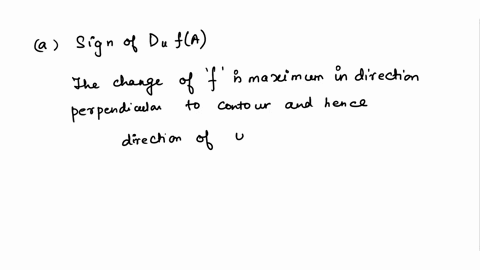 (a) Sign of Du f(A)
The change of 'f' is maximum in direction
perpendicular to contour and hence
direction of u